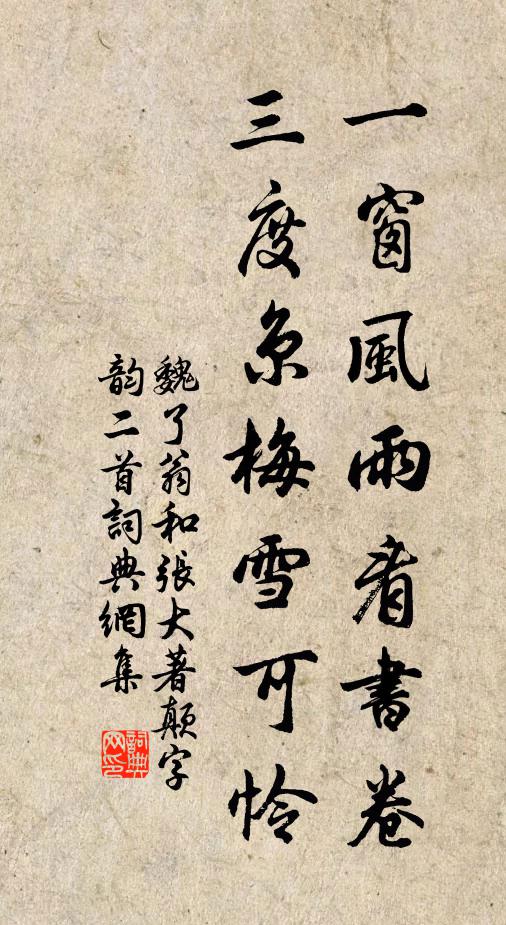 一窗風雨看書卷
三度京梅雪可怜
魏了翁和張大著顛字
韵二首詞典網集
詞典網印